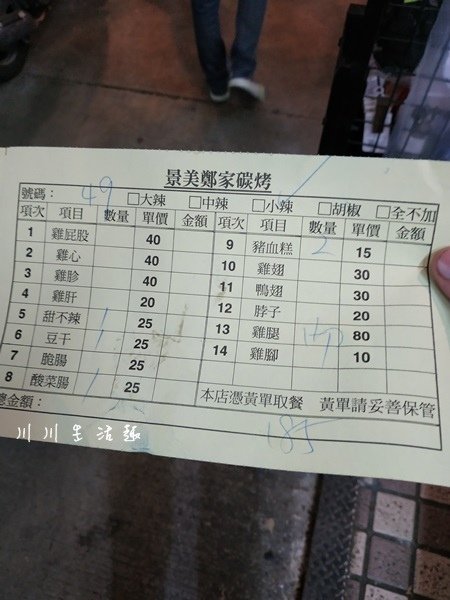 景美鄭家碳烤
號碼： 49 □大辣 □中辣 □小辣 □胡椒 □全不加
項次 項目 數量 單價 金額 項次 項目 數量 單價 金額
1 雞屁股 40 9 豬血糕 2 15
2 雞心 40 10 雞翅 30
3 雞胗 40 11 鴨翅 30
4 雞肝 20 12 脖子 20
5 甜不辣 1 25 13 雞腿 80
6 豆干 1 25 14 雞腳 10
7 脆腸 25
8 酸菜腸 1 25 本店憑黃單取餐 黃單請妥善保管
總金額： 185
川川生活趣